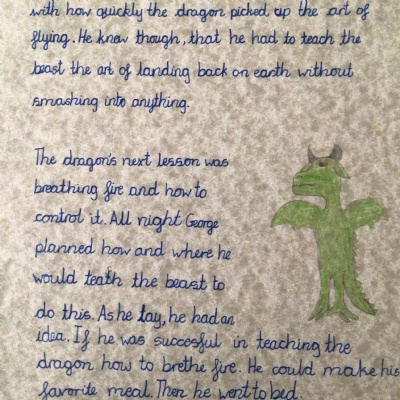 with how quickly the dragon picked up the art of
flying. He knew though, that he had to teach the
beast the art of landing back on earth without
smashing into anything.
The dragon's next lesson was
breathing fire and how to
control it. All night George
planned how and where he
would teath the beast to
do this. As he lay, he had an
idea. If he was succesful in teaching the
dragon how to brethe fire. He could make his
favorite meal. Then he went to bed.